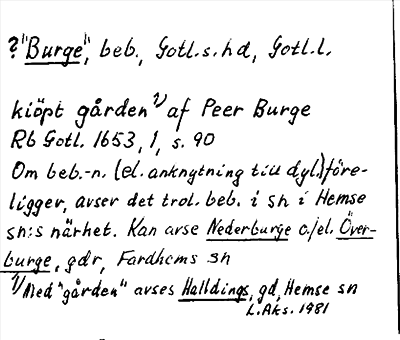 ?"Burge", beb., Gotl.s. hd, Gotl. l.
kiöpt gården 1) af Peer Burge
Rb Gotl. 1653, 1, s. 90
Om beb.-n. (el. anknytning till dyl.) före-
ligger, avser det trol. beb. i sn i Hemse
sn:s närhet. Kan avse Nederburge o./el. Över-
burge, gdr, Fardhems sn
1) Med "gården" avses Halldings, gd, Hemse sn
L. Aks. 1981